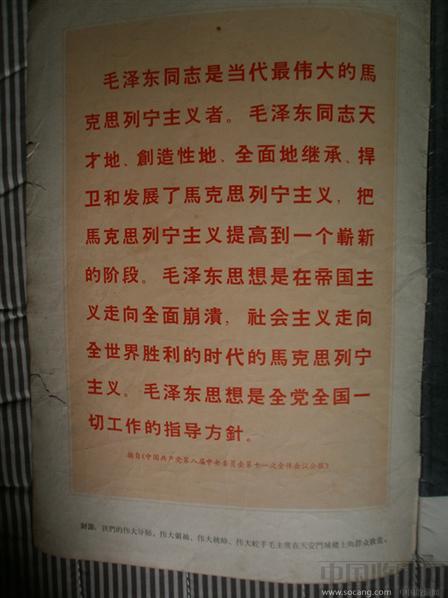 毛泽东同志是当代最伟大的馬
克思列宁主义者。毛泽东同志天
才地、創造性地、全面地继承、捍
卫和发展了馬克思列宁主义，把
馬克思列宁主义提高到一个嶄新
的阶段。毛泽东思想是在帝国主
义走向全面崩潰，社会主义走向
全世界胜利的时代的馬克思列宁
主义。毛泽东思想是全党全国一
切工作的指导方針。
摘自《中国共产党第八届中央委员会第十一次全体会议公报》
封面：我們的伟大导师、伟大領袖、伟大統帅、伟大舵手毛主席在天安門城楼上向群众致意。
中国收藏网
www.socang.com 中国收藏网